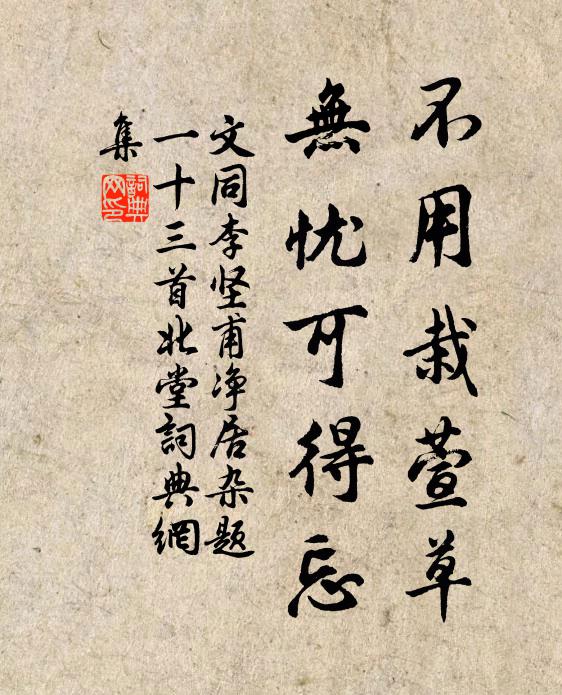 不用栽萱草
無忧可得忘
文同李坚甫净居杂题
一十三首北堂詞典網
集
詞典
网印